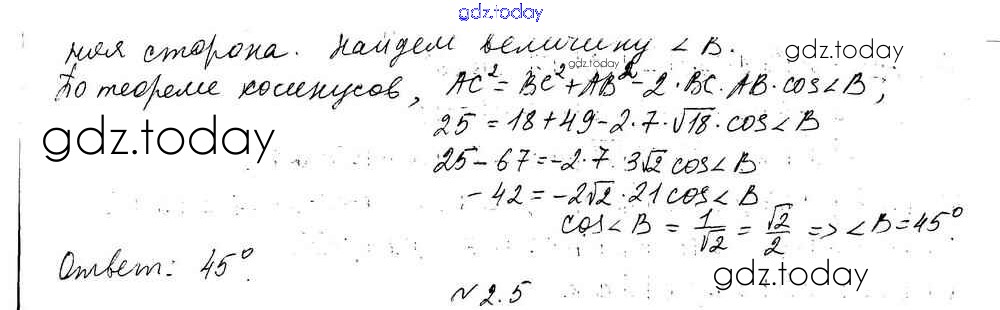 gdz.today
ная сторона. Найдем величину ∠B. gdz.today
По теореме косинусов, AC² = BC² + AB² - 2·BC·AB·cos∠B; gdz.today
25 = 18 + 49 - 2·7·√18·cos∠B
gdz.today
25 - 67 = -2·7·3√2 cos∠B
-42 = -2√2·21 cos∠B
cos∠B = 1/√2 = √2/2 => ∠B = 45°.
Ответ: 45° gdz.today
№2.5